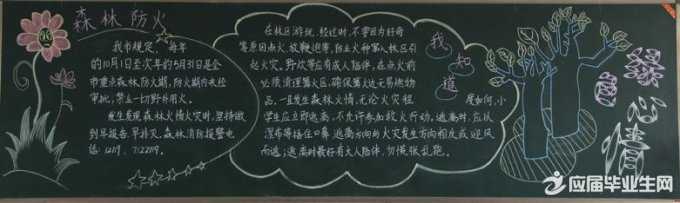 森林防火
我市规定，每年
的10月1日至次年的5月31日是全
市重点森林防火期，防火期内未经
审批，禁止一切野外用火。
发生发现森林火情火灾时，坚持做
到早报告、早排灾，森林消防报警电
话：12119、7122119。
在林区游玩、经过时，不要因为好奇
等原因点火、放鞭炮等，防止火种掉入林区引
起火灾。野炊等应有成人陪伴，在点火前
必须清理篝火区，确保篝火边无易燃物
品。一旦发生森林火情，无论火灾程
度如何，小
学生应立即逃离，不允许参加救火行动。逃离时，应以
湿布等捂住口鼻，逃离方向与火灾发生方向相反或迎风
而逃；逃离时最好有大人陪伴，勿慌张乱跑。
我知道
绿
心情
应届毕业生网